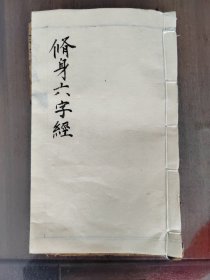 脩身六字經